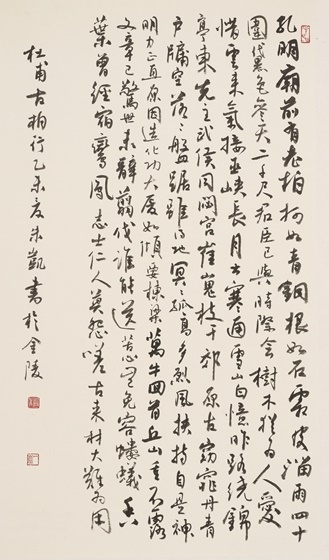 孔明廟前有老柏柯如青銅根如石霜皮溜雨四十
圍黛色參天二千尺君臣已與時際會樹木猶為人愛
惜雲來氣接巫峽長月出寒通雪山白憶昨路繞錦
亭東先主武侯同閟宮崔嵬枝干郊原古窈窕丹青
戶牖空落々盤踞雖得地冥々孤高多烈風扶持自是神
明力正直原因造化功大廈如傾要棟梁萬牛回首丘山重不露
文章已驚世未辭翦伐誰能送苦心豈免容螻蟻香
葉曾經宿鸞鳳志士仁人莫怨嗟古來材大難為用
杜甫古柏行乙未夏朱凱書於金陵